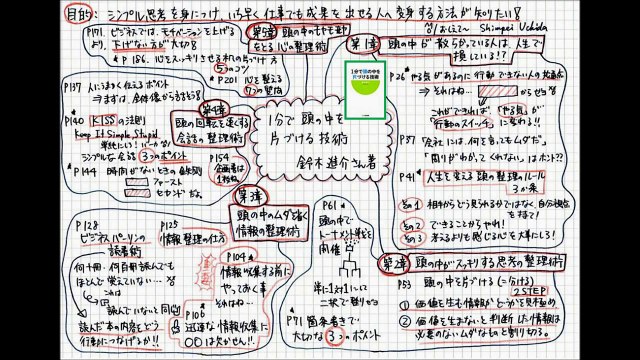 目的: シンプル思考を身につけ いち早く仕事でも成果を出せる人へ変身する方法が知りたい!
Shimpei Uchida
P171. ビジネスでは、モチベーションを上げるより、下げない方が大切!
第5章 頭の中のもやもやをとる心の整理術
* P186. 心をスッキリさせる机の片づけ方 5つのコツ
* P201 心を整える 7つの質問
第1章 頭の中が散らかっている人は、人生で損している!!
P26 やる気があるのに行動できない人の共通点
⇒ それはね… から
これができれば、「やる気」が「行動のスイッチ」に変わる!!
P37 「会社」は、何を言ってもムダだ。
「周りがわかってくれない」はホント??
P41 人生を変える頭の整理のルール 3か条
その1 相手からどう見られるかではなく、自分視点を持て!
その2 できることからやれ!
その3 考えるよりも感じる心を大事にしろ!
1分で頭の中を片づける技術
鈴木進介さん著
P137 人にうまく伝えるポイント
⇒まずは、全体像から話そう!
P140 KISSの法則
Keep It Simple, Stupid
単純にいい!バーカな!
シンプルな会話 3つのポイント
P144 時間がないときの鉄則
ファースト
セカンドだよ。
第4章 頭の回転を速くする会話の整理術
P154 企画書は1枚ね
第3章 頭の中のムダを省く情報の整理術
P128 ビジネスパーソンの読書術
何十冊、何百冊読んでもほとんど覚えていない…?
これは
読んでいないと同じ
読んだ本の内容をどう行動につなげるか!!
P125 情報整理の仕方
P104 情報収集する前にやっておく事
それはね…
P106 迅速な情報収集に〇〇は欠かせん!!
P61 頭の中でトーナメント戦を開催
常に1対1に二択で割りきる
P71 箇条書きで大切な3つのポイント
第2章 頭の中がスッキリする思考の整理術
P53 頭の中を片づける(=分ける) 2STEP
① 価値を生む情報かどうかを見極め
② 価値を生まないと判断した情報は必要のないムダなものと割り切る。